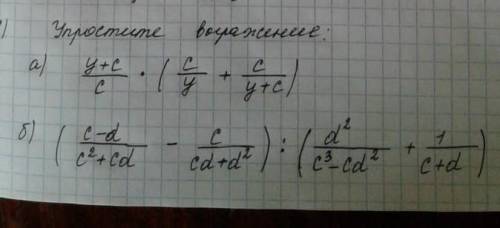 1) Упростите выражение:
а) (y+c)/c · (c/y + c/(y+c))
б) ((c-d)/(c²+cd) - c/(cd+d²)) : (d²/(c³-cd²) + 1/(c+d))